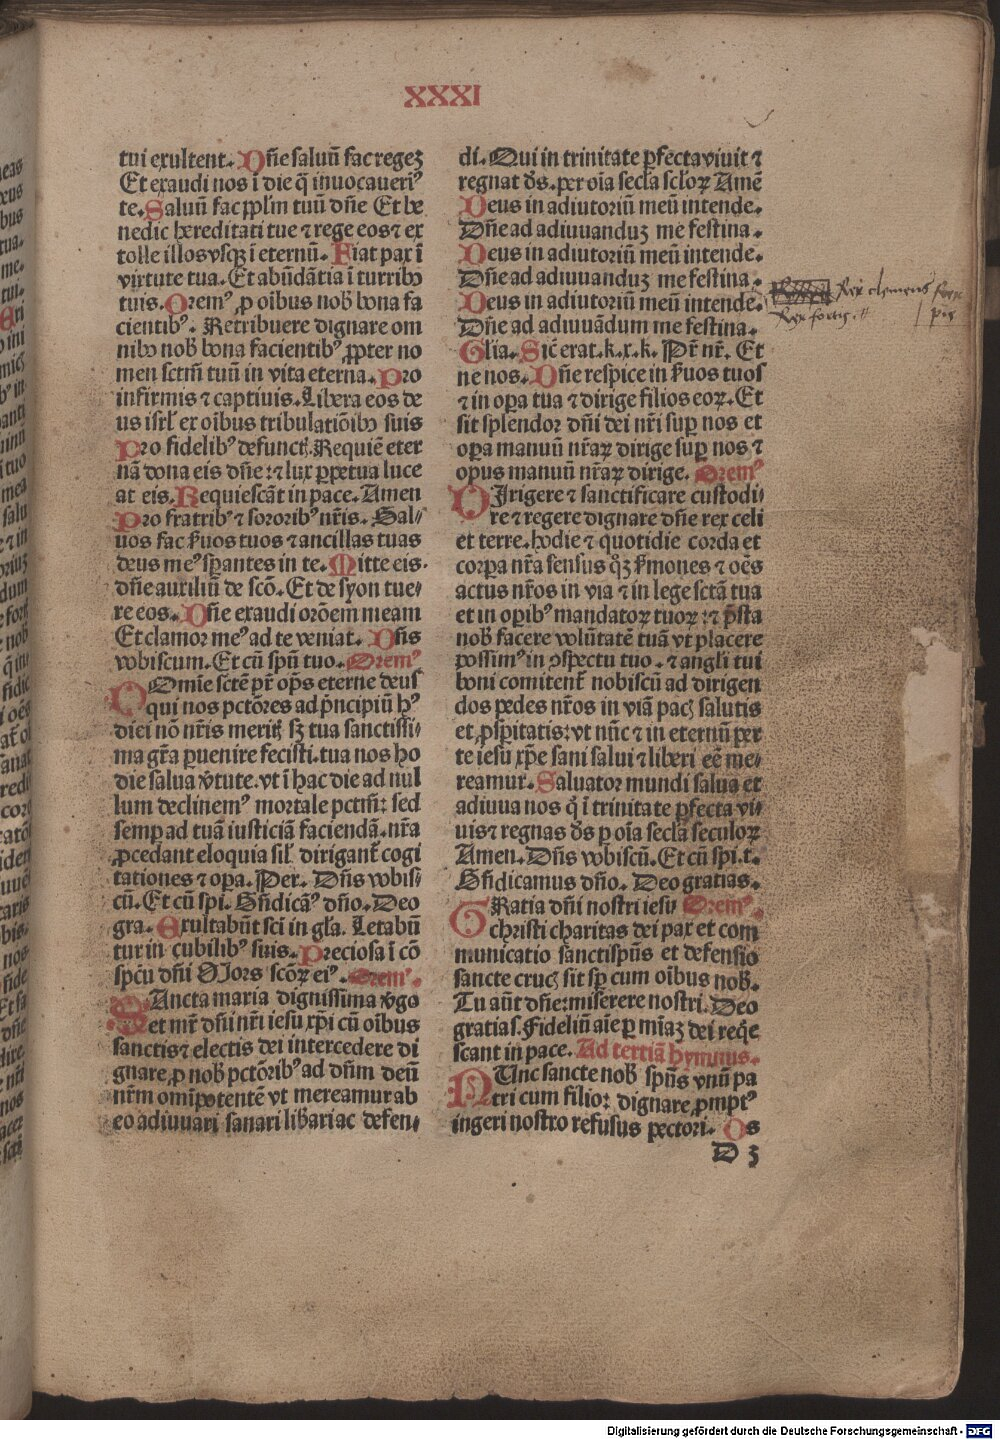 XXXI
tui exultent. Dñe saluũ fac regeʒ
Et exaudi nos ĩ die q̃ inuocaueriꝰ
te. Saluũ fac pp̃lm tuũ dñe Et be
nedic hereditati tue ⁊ rege eos ⁊ ex
tolle illos vsqꝫ ĩ eternũ. Fiat pax ĩ
virtute tua. Et abũdãtia ĩ turribꝰ
tuis. Oremꝰ ꝓ oĩbus nob̃ bona fa
cientibꝰ. Retribuere dignare om
nibꝰ nob̃ bona facientibꝰ ꝓpter no
men sctm̃ tuũ in vita eterna. Pro
infirmis ⁊ captiuis. Libera eos de
us isrl̃ ex oĩbus tribulatiõibꝰ suis
Pro fidelibꝰ defunct̃. Requiẽ eter
nã dona eis dñe: ⁊ lux ꝑpetua luce
at eis. Requiescãt in pace. Amen
Pro fratribꝰ ⁊ sororibꝰ nr̃is. Sal⸗
uos fac ẜuos tuos ⁊ ancillas tuas
deus meꝰ sꝑantes in te. Mitte eis.
dñe auxiliũ de scõ. Et de syon tue⸗
re eos. Dñe exaudi orõem meam
Et clamor meꝰ ad te veniat. Dñs
vobiscum. Et cũ spũ tuo. Oremꝰ
DOmĩe sctẽ pr̃ op̃s eterne deus
qui nos pctõres ad pñcipiũ hꝰ
diei nõ nr̃is merit̃ sʒ tua sanctissi⸗
ma gr̃a ꝑuenire fecisti. tua nos ho
die salua v̾tute. vt ĩ hac die ad nul
lum declinemꝰ mortale pctm̃: sed
semꝑ ad tuã iusticiã faciendã. nr̃a
ꝓcedant eloquia sil̃ dirigant̃ cogi
tationes ⁊ oꝑa. Per. Dñs vobis⸗
cũ. Et cũ spi. Bñdicã⁹ dño. Deo
gra. Exultabũt sci in gl̃a. Letabũ
tur in cubilibꝰ suis. Preciosa ĩ cõ
spcũ dñi Mors scõꝝ eiꝰ. Oremꝰ.
SAncta maria dignissima v̾go
et mr̃ dñi nr̃i iesu xp̃i cũ oĩbus
sanctis ⁊ electis dei intercedere di
gnare ꝓ nob̃ pctõribꝰ ad dñm deũ
nr̃m omĩpotentẽ vt mereamur ab
eo adiuuari sanari lib̾ari ac defen⸗
di. Qui in trinitate ꝑfecta viuit ⁊
regnat d̃s. per oĩa secl̃a scl̃oꝝ Amẽ
Deus in adiutoriũ meũ intende.
Dñe ad adiuuanduʒ me festina.
Deus in adiutoriũ meũ intende.
Dñe ad adiuuanduʒ me festina.
Deus in adiutoriũ meũ intende.
Dñe ad adiuuãdum me festina.
Gl̃ia. Sic̃ erat. k. x. k. Pr̃ nr̃. Et
ne nos. Dñe respice in ẜuos tuos
⁊ in oꝑa tua ⁊ dirige filios eoꝝ. Et
sit splendor dñi dei nr̃i suꝑ nos et
oꝑa manuũ nr̃aꝝ dirige suꝑ nos ⁊
opus manuũ nr̃aꝝ dirige. Oremꝰ
DIrigere ⁊ sanctificare custodi⸗
re ⁊ regere dignare dñe rex celi
et terre. hodie ⁊ quotidie corda et
corꝑa nr̃a sensus qͦꝫ ẜmones ⁊ oẽs
actus nr̃os in via ⁊ in lege sctã tua
et in oꝑibꝰ mandatoꝝ tuoꝝ: ⁊ p̃sta
nob̃ facere volũtatẽ tuã vt placere
possimꝰ in ꝯspectu tuo. ⁊ angli tui
boni comitent̃ nobiscũ ad dirigen
dos pedes nr̃os in viã pac̃ salutis
et ꝓsꝑitatis: vt nũc ⁊ in eternũ per
te iesu xp̃e sani salui ⁊ liberi eẽ me⸗
reamur. Saluator mundi salua et
adiuua nos q̃ ĩ trinitate ꝑfecta vi⸗
uis ⁊ regnas d̃s ꝑ oĩa secl̃a seculoꝝ
Amen. Dñs vobiscũ. Et cũ spi. t.
Bñdicamus dño. Deo gratias.
GRatia dñi nostri iesu Oremꝰ.
christi charitas dei pax et com
municatio sanctispũs et defensio
sancte cruc̃ sit sꝑ cum oĩbus nob̃.
Tu aũt dñe: miserere nostri. Deo
gratias. Fideliũ aĩe ꝑ mĩaʒ dei req̾e
scant in pace. Ad tertiã hymnus.
NUnc sancte nob̃ spũs vnũ pa
tri cum filio: dignare ꝓmptꝰ
ingeri nostro refusus pectori. Os
D 3
Rex clemens
Rex fortis
Digitalisierung gefördert durch die Deutsche Forschungsgemeinschaft - DFG